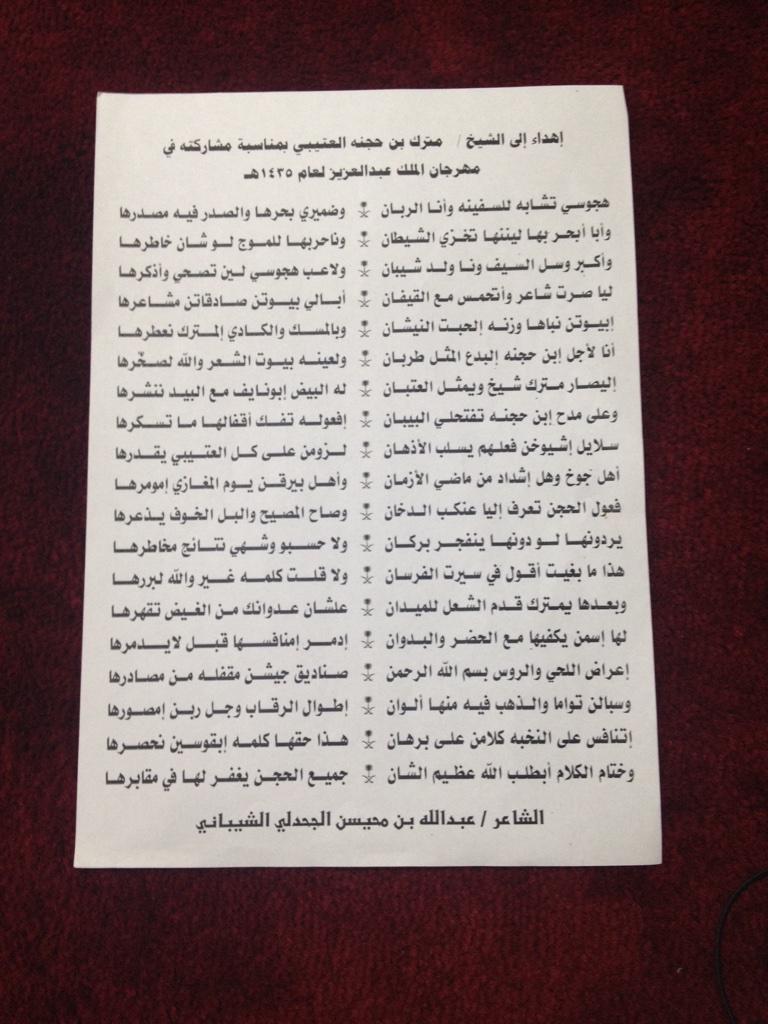 إهداء إلى الشيخ / مترك بن حجنه العتيبي بمناسبة مشاركته في
مهرجان الملك عبدالعزيز لعام ١٤٣٥هـ
هجوسي تشابه للسفينه وأنا الربان وضميري بحرها والصدر فيه مصدرها
وأبا أبحر بها ليننها تخزي الشيطان وناحربها للموج لو شان خاطرها
وأكبر وسل السيف ونا ولد شيبان ولاعب هجوسي لين تصحي وأذكرها
ليا صرت شاعر وأتحمس مع القيفان أبالي بيوتن صادقاتن مشاعرها
إبيوتن نباها وزنه إلحبت النيشان وبالمسك والكادي إلمترك نعطرها
أنا لأجل إبن حجنه إلبدع المثل طربان ولعينه بيوت الشعر والله لصخّرها
إليصار مترك شيخ ويمثل العتبان له البيض إبونايف مع البيد ننشرها
وعلى مدح إبن حجنه تفتحلي البيبان إفعوله تفك أقفالها ما تسكرها
سلايل إشيوخن فعلهم يسلب الأذهان لزومن على كل العتيبي يقدرها
أهل جوخ وهل إشداد من ماضي الأزمان وأهل بيرقن يوم المغازي إمومرها
فعول الحجن تعرف إليا عنكب الدخان وصاح المصيح والبل الخوف يذعرها
يردونها لو دونها ينفجر بركان ولا حسبو وشهي نتائج مخاطرها
هذا ما بغيت أقول في سيرت الفرسان ولا قلت كلمه غير والله لبررها
وبعدها يمترك قدم الشعل للميدان علشان عدوانك من الغيض تقهرها
لها إسمن يكفيها مع الحضر والبدوان إدمر إمنافسها قبل لايدمرها
إعراض اللحي والروس بسم الله الرحمن صناديق جيشن مقفله من مصادرها
وسبالن تواما والذهب فيه منها ألوان إطوال الرقاب وجل ربن إمصورها
إتنافس على النخبه كلامن على برهان هذا حقها كلمه إبقوسين نحصرها
وختام الكلام أبطلب الله عظيم الشان جميع الحجن يغفر لها في مقابرها
الشاعر / عبدالله بن محيسن الجحدلي الشيباني